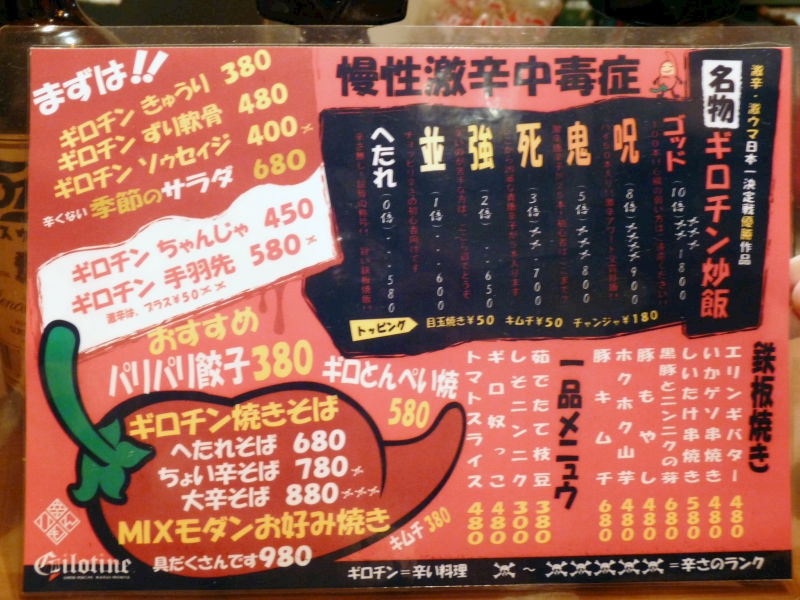 まずは!!
ギロチン きゅうり 380
ギロチン ずり軟骨 480
ギロチン ソゥセイジ 400
辛くない 季節のサラダ 680
ギロチン ちゃんじゃ 450
ギロチン 手羽先 580
激辛は、プラス¥50
慢性激辛中毒症
激辛・激ウマ日本一決定戦優勝作品
名物 ギロチン炒飯
ゴッド (10倍) 1800
呪 (8倍) 900
鬼 (5倍) 800
死 (3倍) 700
強 (2倍) 650
並 (1倍) 600
へたれ (0倍) 580
トッピング 目玉焼き¥50 キムチ¥50 チャンジャ¥180
おすすめ
パリパリ餃子380
ギロとんぺい焼 580
ギロチン焼きそば
へたれそば 680
ちょい辛そば 780
大辛そば 880
MIXモダンお好み焼き
具だくさんです980
キムチ380
鉄板焼き
エリンギバター 480
いかゲソ串焼き 480
しいたけ串焼き 580
黒豚とニンニクの芽 680
豚もやし 480
ホクホク山芋 480
豚キムチ 680
一品メニュウ
茹でたて枝豆 380
しそニンニク 300
ギロ奴っこ 480
トマトスライス 480
Gilotine
ギロチン=辛い料理 ～ =辛さのランク